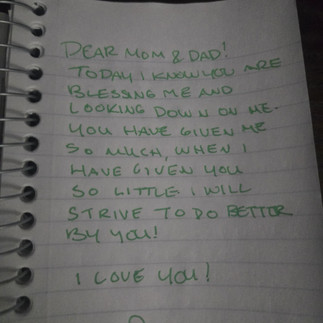 DEAR MOM & DAD!
TODAY I KNOW YOU ARE
BLESSING ME AND
LOOKING DOWN ON ME.
YOU HAVE GIVEN ME
SO MUCH, WHEN I
HAVE GIVEN YOU
SO LITTLE. I WILL
STRIVE TO DO BETTER
BY YOU!
I LOVE YOU!